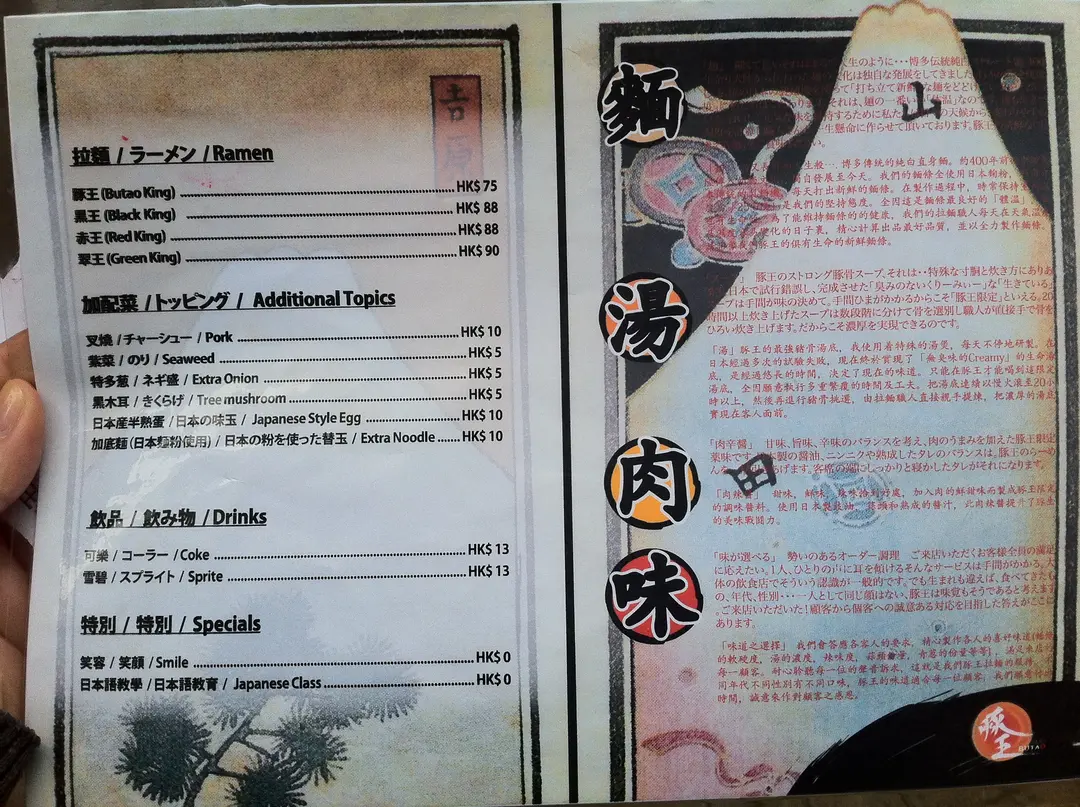 吉原
拉麵 / ラーメン / Ramen
豚王 (Butao King) HK$ 75
黒王 (Black King) HK$ 88
赤王 (Red King) HK$ 88
翠王 (Green King) HK$ 90
加配菜 / トッピング / Additional Topics
叉燒 / チャーシュー / Pork HK$ 10
紫菜 / のり / Seaweed HK$ 5
特多葱 / ネギ盛 / Extra Onion HK$ 5
黒木耳 / きくらげ / Tree mushroom HK$ 5
日本産半熟蛋 / 日本の味玉 / Japanese Style Egg HK$ 10
加底麵 (日本麵粉使用) / 日本の粉を使った替玉 / Extra Noodle HK$ 10
飲品 / 飲み物 / Drinks
可樂 / コーラー / Coke HK$ 13
雪碧 / スプライト / Sprite HK$ 13
特別 / 特別 / Specials
笑容 / 笑顔 / Smile HK$ 0
日本語教學 / 日本語教育 / Japanese Class HK$ 0
麵
山
人生のように･･･博多伝統純白
化は独自な発展をしてきました
「打ち立て新鮮な麺をどけ
それは、麺の一番い「体温」なので
持するために私た の天候から
一生懸命に作らせて頂いております。豚王
生般… 博多傳統的純白直身麵。約400年前
自發展至今天。我們的麵條全使用日本麴粉,
每天打出新鮮的麵條。在製作過程中,時常保持
是我們的堅持態度。全因這是麵條最良好的「體溫」
為了能維持麵條的的健康,我們的拉麵職人每天在天氣溫
化的日子裏,精心計算出品最好品質,並以全力製作麵條。
豚王的俱有生命的新鮮麵條。
湯
豚王のストロング豚骨スープ、それは･･特殊な寸胴と炊き方にありあ
日本で試行錯誤し、完成させた「臭みのないくりーみぃー」な「生きている」
スープは手間が味の決めて。手間ひまがかかるからこそ「豚王限定」といえる。20
時間以上炊き上げたスープは数段階に分けて骨を選別し職人が直接手で骨を
ひろい炊き上げます。だからこそ濃厚を実現できるのです。
「湯」豚王的最強豬骨湯底,我使用着特殊的湯煲,每天不停地研製。在
日本經過多次的試驗失敗,現在終於實現了「無臭味的Creamy」的生命湯
底,是經過悠長的時間,決定了現在的味道。只能在豚王才能喝到這限定
湯底,全因願意執行多重繁瘦的時間及工夫。把湯底連續以慢火滾至20小
時以上,然後再進行豬骨挑選,由拉麵職人直接親手提煉,把濃厚的湯底
實現在客人面前。
肉
田
「肉辛醤」 甘味、旨味、辛味のバランスを考え、肉のうまみを加えた豚王限定
薬味です。 本製の醤油、ニンニクや熟成したタレのバランスは、豚王のらーめ
んを あげます。客席の端にしっかりと寝かしたタレがそれになります。
「肉辣醬」 甜味,鮮味,辣味恰到好處,加入肉的鮮甜味而製成豚王限定
的調味醬料。使用日本製豉油,蒜頭和熟成的醬汁,此肉辣醬提升了豚王
的美味戰闘力。
味
「味が選べる」 勢いのあるオーダー調理 ご来店いただくお客様全員の満足
に応えたい。1人、ひとりの声に耳を傾けるそんなサービスは手間がかかる。大
体の飲食店でそういう認識が一般的です。でも生まれも違えば、食べてきたも
の、年代、性別･･･一人として同じ顔はない、豚王は味覚もそうであると考えます
。ご来店いただいた！顧客から個客への誠意ある対応を目指した答えがここに
あります。
「味道之選擇」 我們會答應各客人的要求,精心製作各人的喜好味道(麵條
的軟硬度,湯的濃度,辣味度,蒜頭 量,青葱的份量等等),滿足來店的
每一顧客。耐心聆聽每一位的聲音訴求,這就是我們豚王拉麵的服務。
同年代不同性別有不同口味,豚王的味道適合每一位顧客,我們願意付
時間,誠意來作對顧客之感恩。
豚王
BUTAO